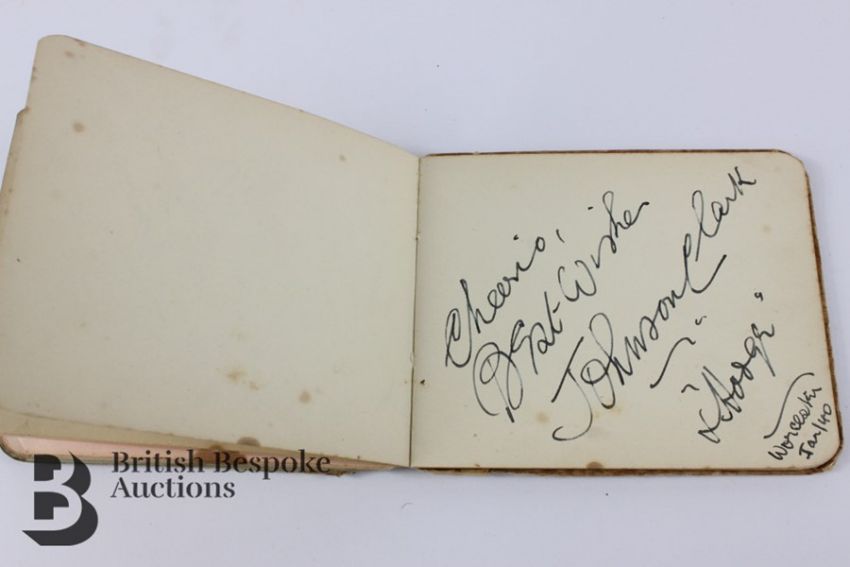 Cheerio,
Best Wishes
Johnson Clark
"Hodge"
Worcester
Jan/40
British Bespoke
Auctions